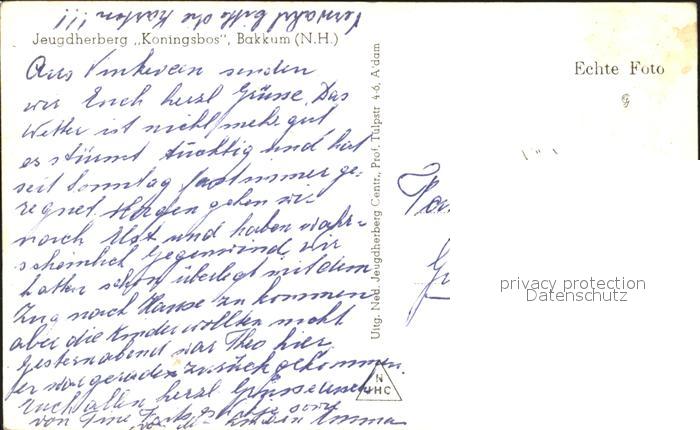 Verwahrt bitte die Karten!!!
Jeugdherberg „Koningsbos", Bakkum (N.H.)
Aus Vinkeveen senden
wir Euch herzl Grüsse. Das
Wetter ist nicht mehr gut
es stürmt tüchtig und hat
seit Sonntag fast immer ge-
regnet. Morgen gehen wir
nach und haben wahr-
scheinlich Gegenwind. Wir
hatten schon überlegt mit dem
Zug nach Hause zu kommen
aber die Kinder wollten nicht
Gestern abend war Theo hier.
er war gerade zurück gekommen.
Euch allen herzl Grüsse
von Emma
Uitg. Ned. Jeugdherberg Centr., Prof. Tulpstr 4-6, A'dam
Echte Foto
privacy protection
Datenschutz
N
JHC